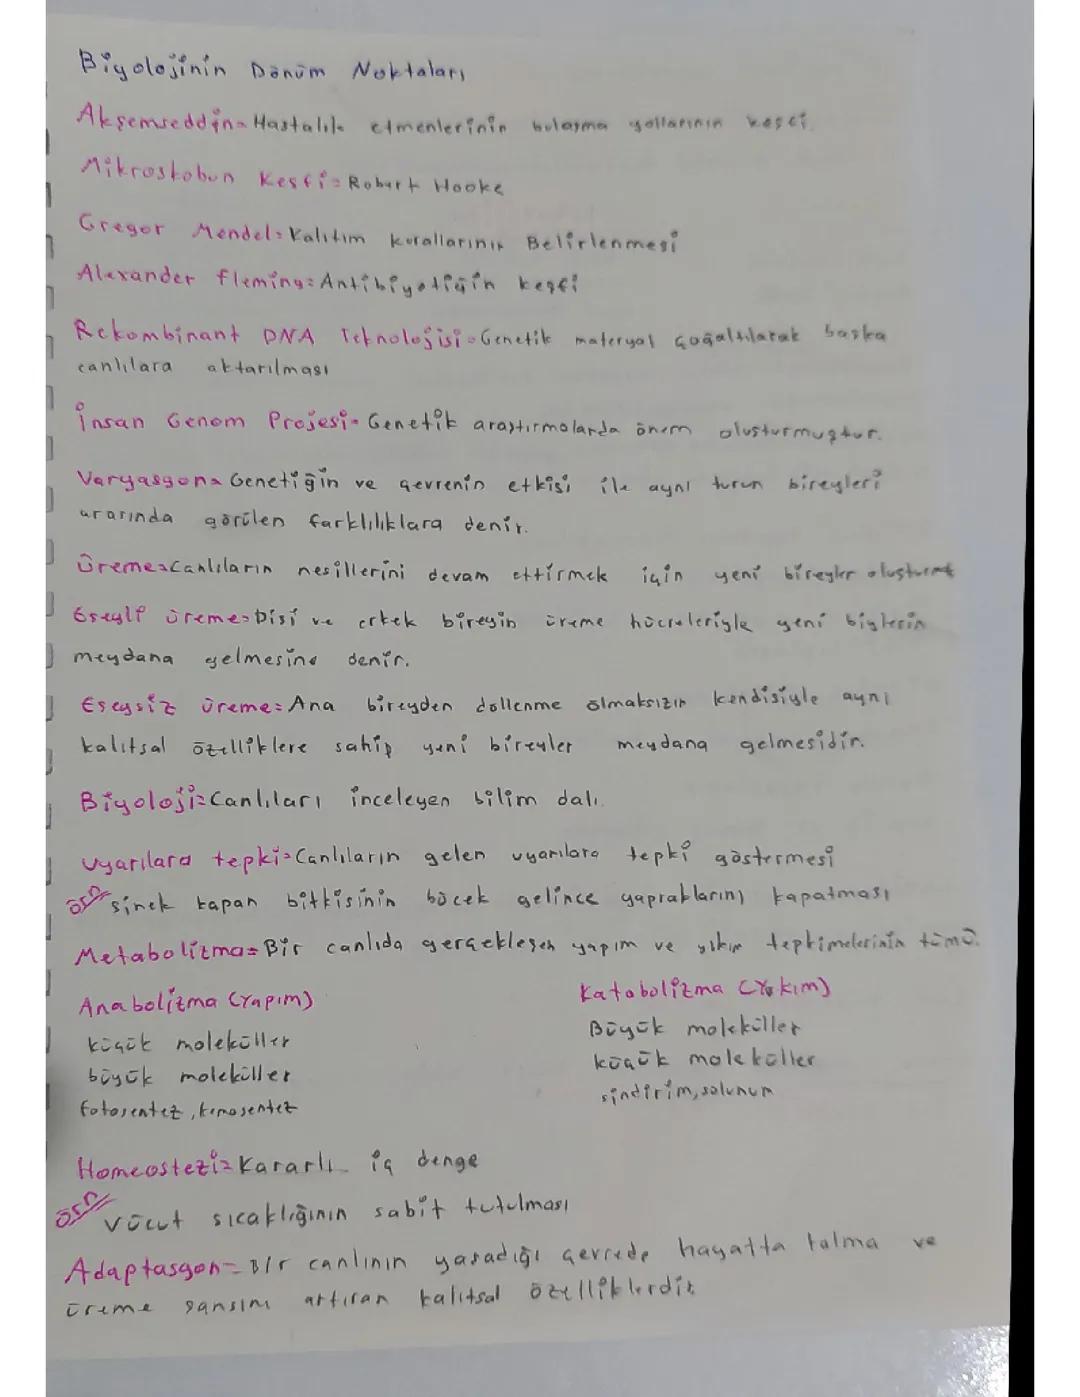 Biyolojinin Dönüm Noktaları
Akşemseddin= Hastalık etmenlerinin bulaşma yollarının keşfi.
Mikroskobun Keşfi= Robert Hooke
Gregor Mendel= Kalıtım kurallarının Belirlenmesi
Alexander fleming= Antibiyotiğin keşfi
Rekombinant DNA Teknolojisi= Genetik materyal çoğaltılarak başka
canlılara aktarılması
İnsan Genom Projesi= Genetik araştırmalarda önem oluşturmuştur.
Varyasyon= Genetiğin ve çevrenin etkisi ile aynı turun bireyleri
ararında görülen farklılıklara denir.
Üreme= Canlıların nesillerini devam ettirmek için yeni bireyler
Eşeyli üreme= Dişi ve erkek bireyin üreme hücreleriyle yeni
meydana gelmesine denir.
Eşeysiz üreme= Ana bireyden döllenme olmaksızın kendisiyle aynı
kalıtsal özelliklere sahip yeni bireyler meydana gelmesidir.
Biyoloji= Canlıları inceleyen bilim dalı.
Uyarılara tepki= Canlıların gelen uyarılara tepki göstermesi
örn sinek kapan bitkisinin böcek gelince yapraklarını kapatması
Metabolizma= Bir canlıda gerçekleşen yapım ve yıkım tepkimelerinin tümü.
Anabolizma (Yapım)
küçük moleküller
büyük moleküller
fotosentez, kemosentez
Katabolizma (Yıkım)
Büyük moleküller
küçük moleküller
sindirim, solunum
Homeostezi= Kararlı iç denge
örn vücut sıcaklığının sabit tutulması
Adaptasyon= Bir canlının yaşadığı çevrede hayatta kalma ve
üreme şansını artıran kalıtsal özelliklerdir.